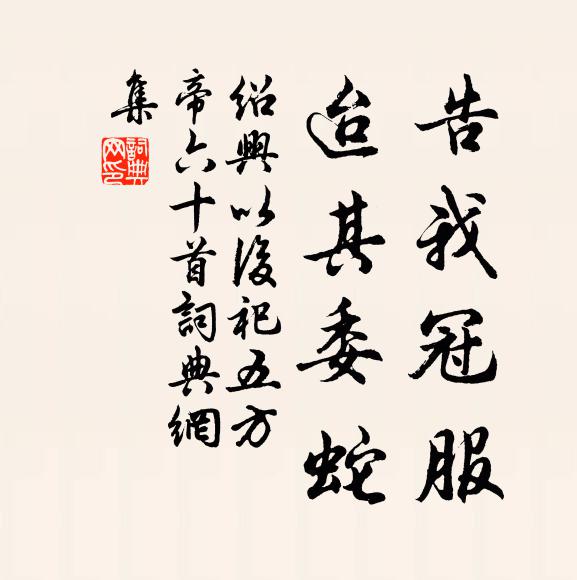 告我冠服
迨其委蛇
紹興以後祀五方
帝六十首詞典網
集
詞典
网印